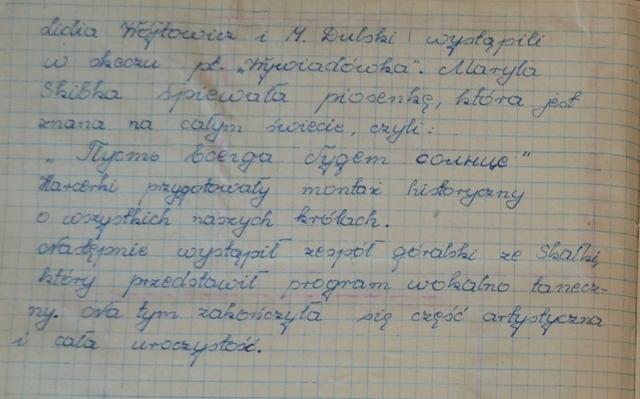 Lidia Wójtowicz i M. Dulski wystąpili
w skeczu pt. „Wywiadówka". Maryla
Skibka śpiewała piosenkę, która jest
znana na całym świecie, czyli:
„Пусть всегда будет солнце"
Harcerki przygotowały montaż historyczny
o wszystkich naszych królach.
Następnie wystąpił zespół góralski ze Skalki,
który przedstawił program wokalno tanecz-
ny. Na tym zakończyła się część artystyczna
i cała uroczystość.